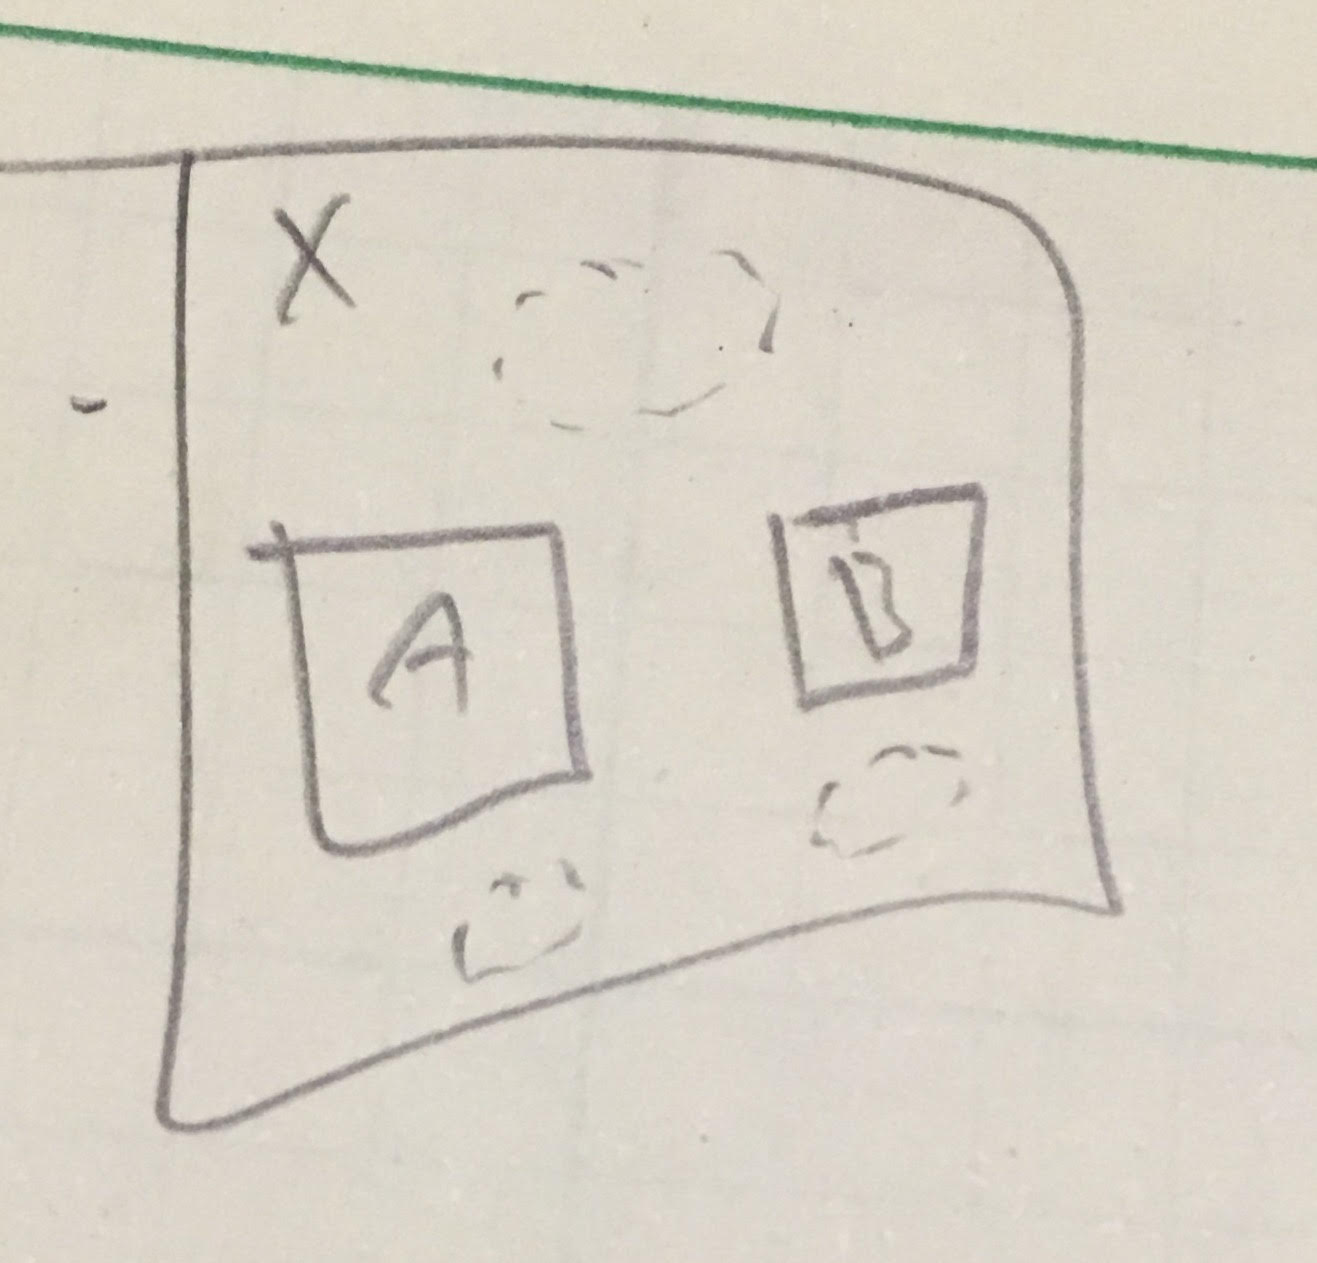 X
A
B